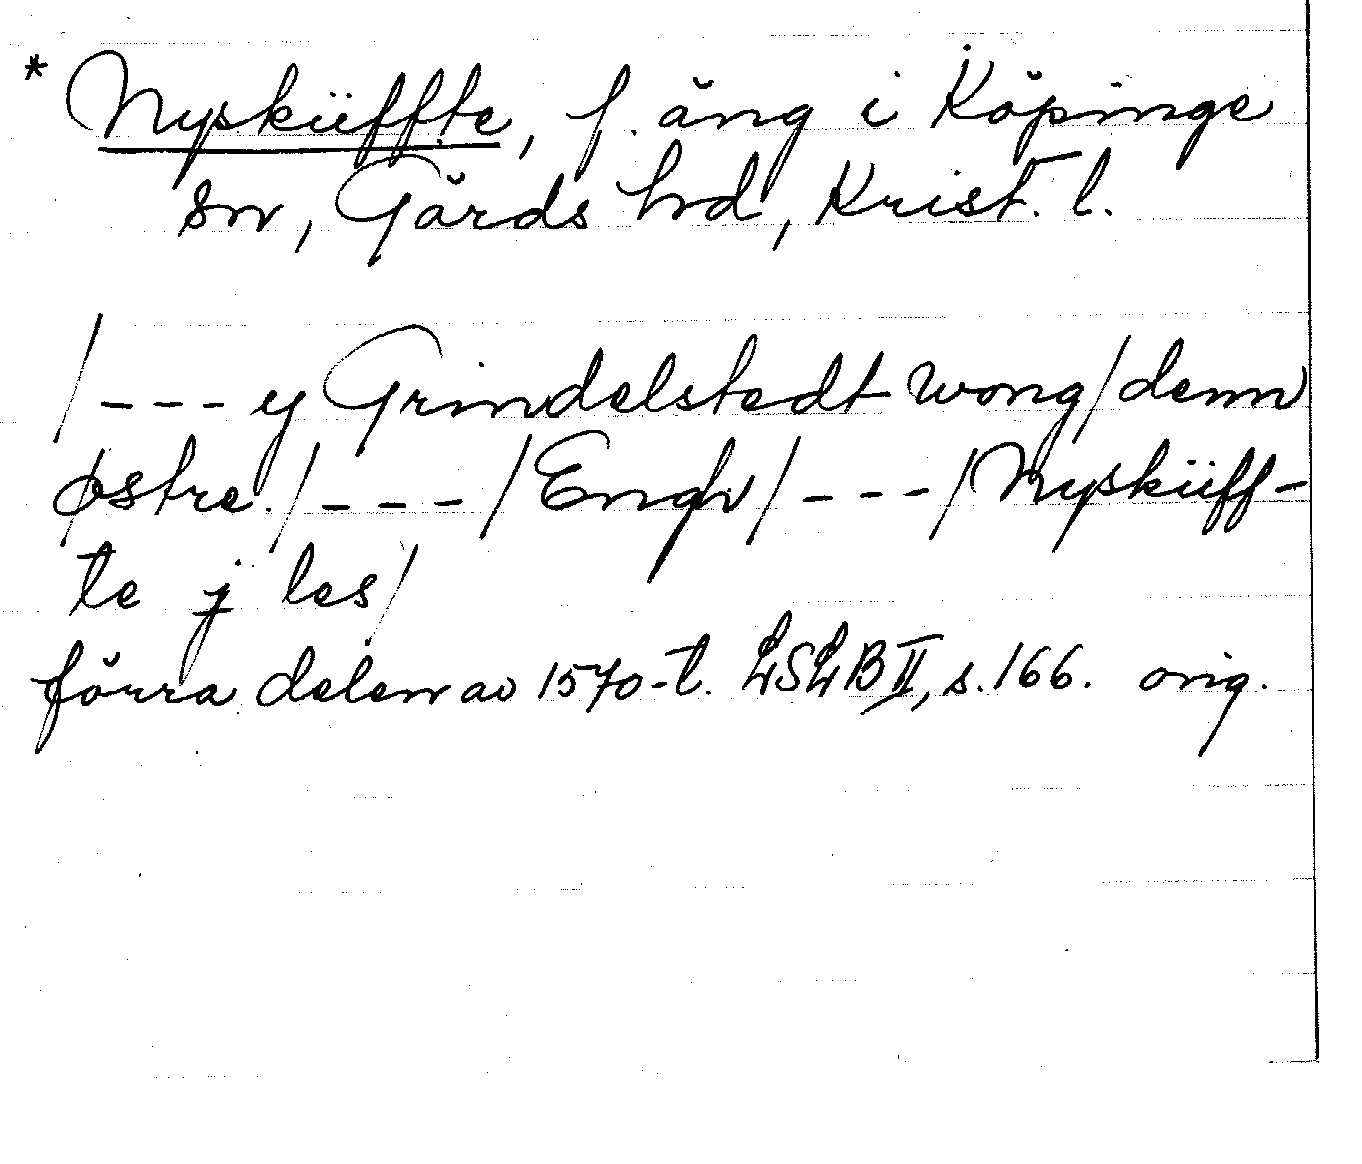 * Nysküffte, f. äng i Köpinge
sn, Gärds hd, Krist. l.
/--- y Grindelstedt wong/denn
østre./---/Engh/---/Nysküff-
te j les/
förra delen av 1570-t. LSLB II, s. 166. orig.